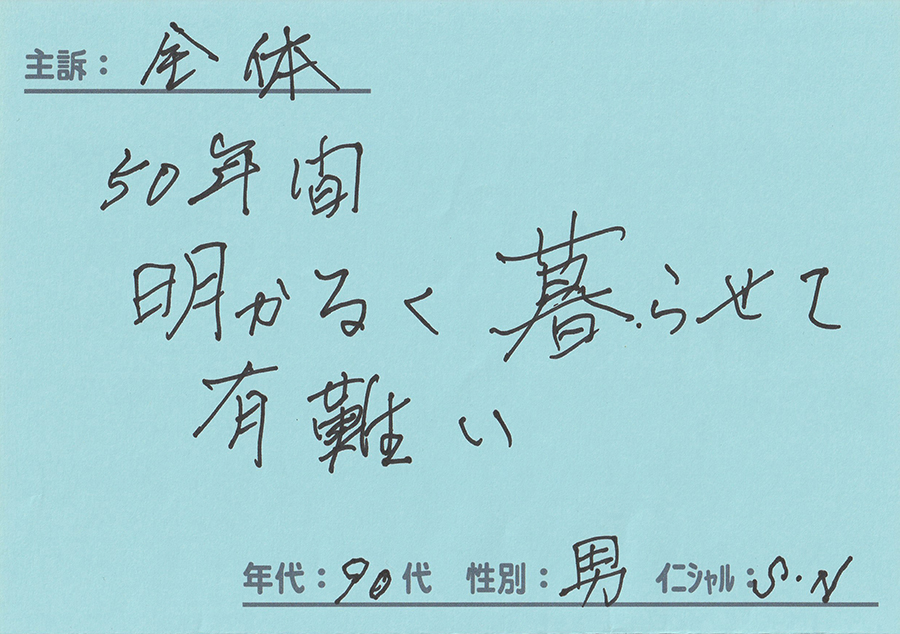 主訴：全体
50年間
明かるく暮らせて
有難い
年代：90代 性別：男 イニシャル：S・N